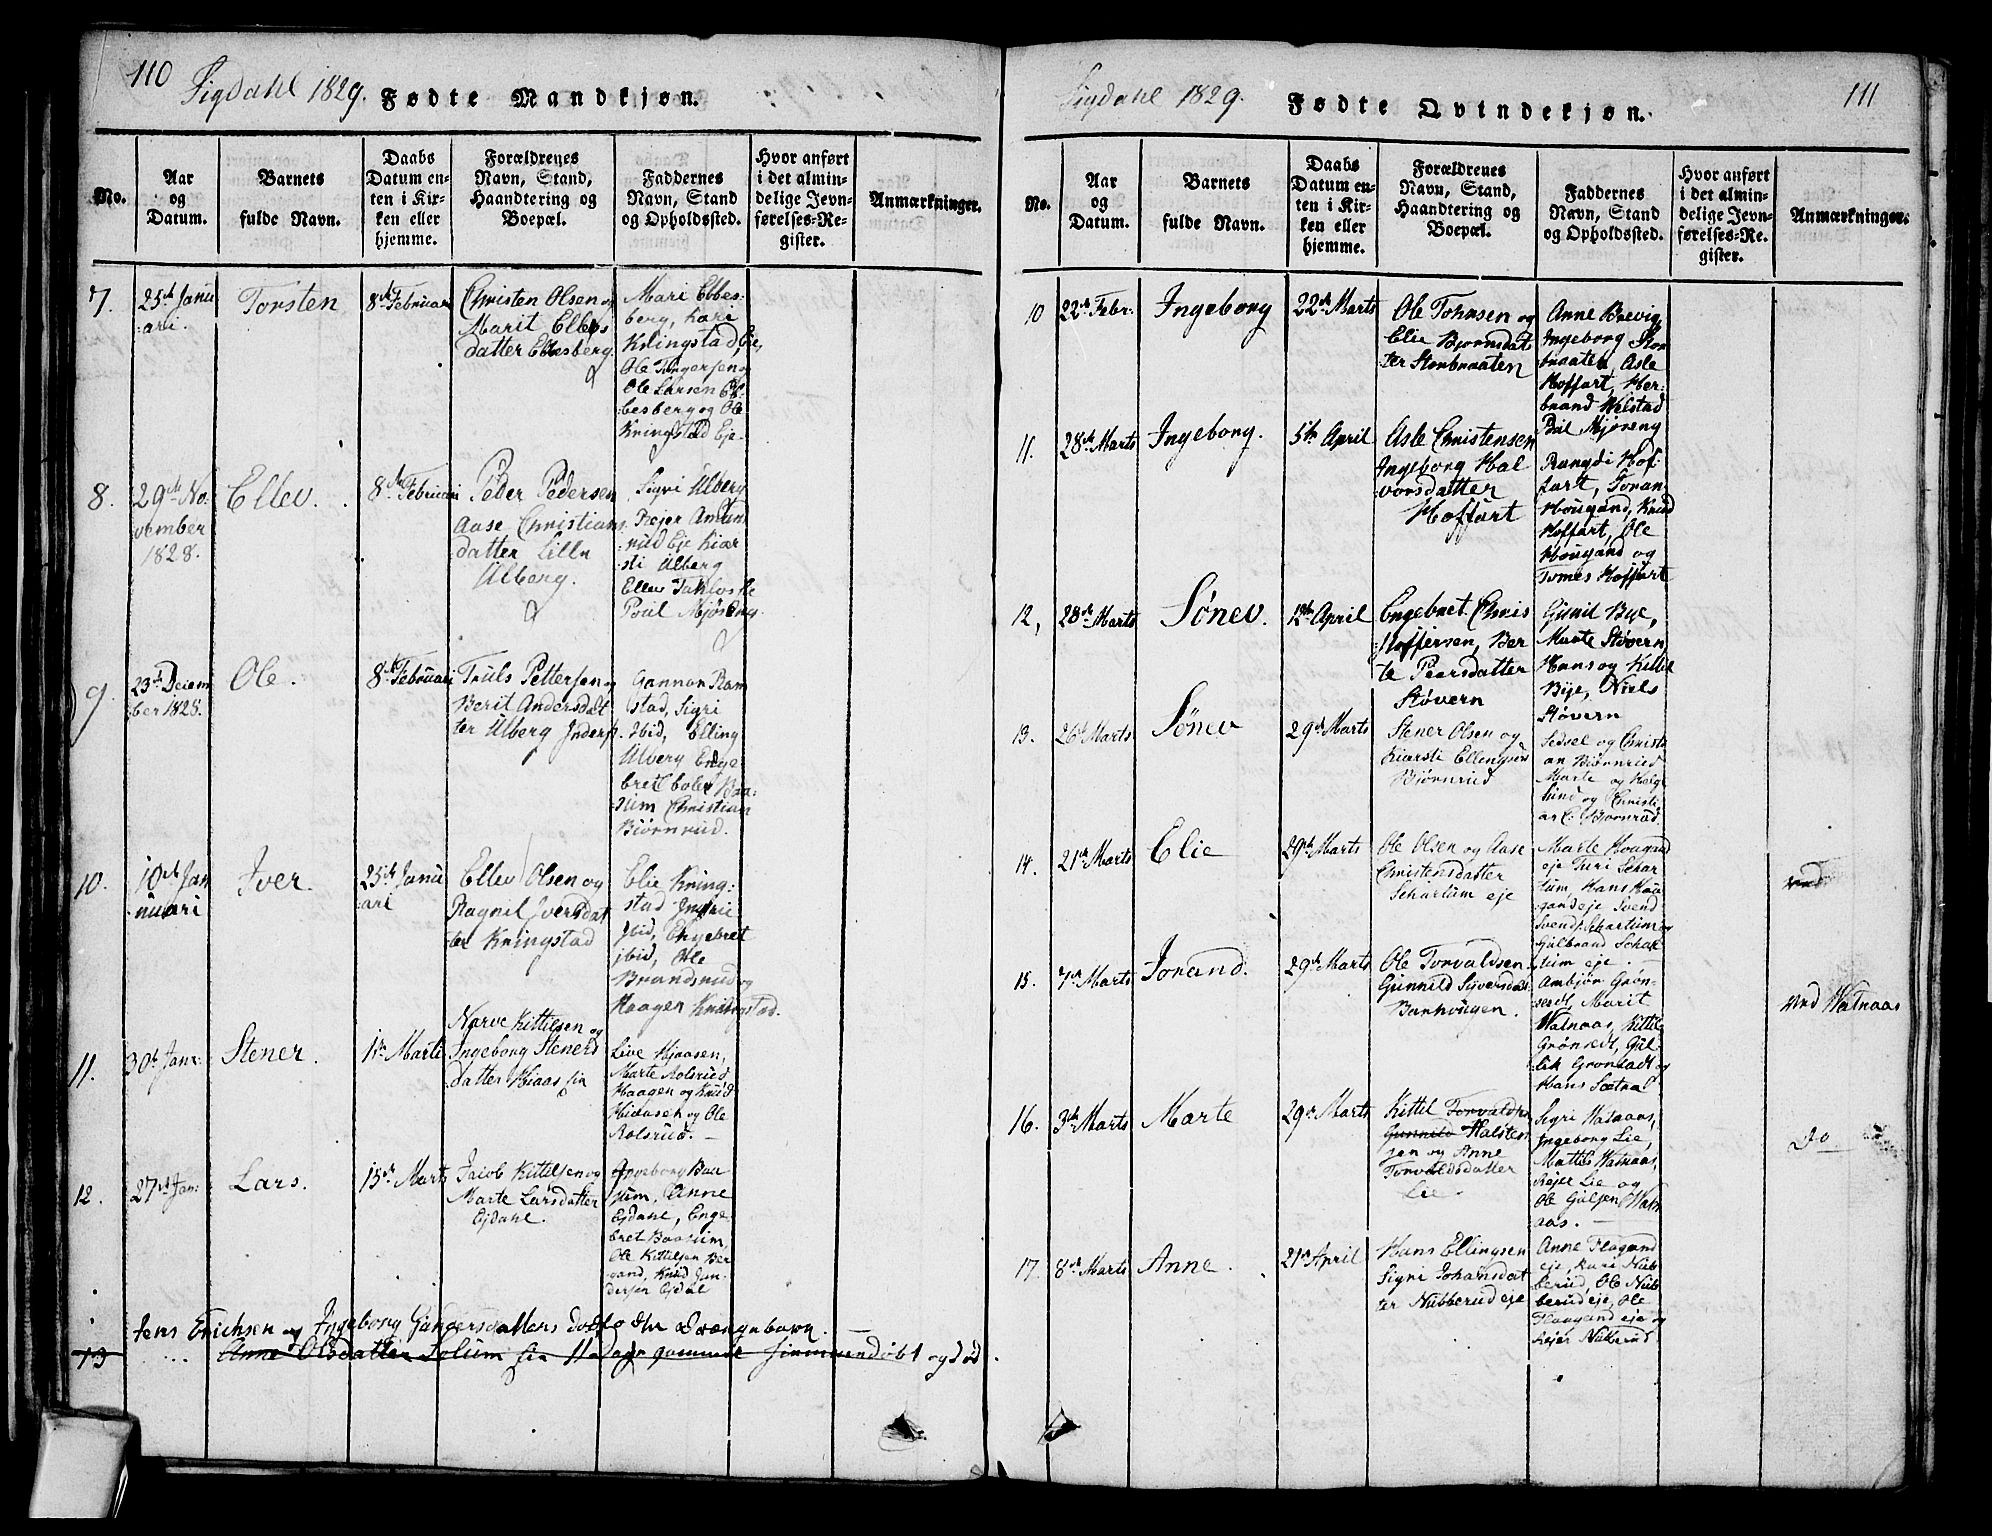 110
Sigdahl 1829. Fødte Mandkjøn.
No.
Aar
og
Datum.
Barnets
fulde Navn.
Daabs
Datum en-
ten i Kir-
ken eller
hjemme.
Forældrenes
Navn, Stand,
Haandtering og
Boepæl.
Faddernes
Navn, Stand
og Opholdssted.
Hvor anført
i det almin-
delige Jevn-
førelses-Re-
gister.
Anmærkninger.
7.
25de Janu
ari.
Torsten
8de Februari
Christen Olsen og
Marit Ellevs
datter Ebbesberg.
Mari Ebbes-
berg, Kari
Kringstad Eie,
Ole Torgersen
Ole Larsen Eb-
besberg og Ole
Kringstad Eje.
8.
29de No-
vember
1828.
Ellev.
8de Februari
Peder Pedersen
Aase Christians
datter Lille
Ulberg.
Sigri Ulberg
Rejer Amun
rud Eje Kiær
sti Ulberg
Ellev
Poul Mjøseng
9.
23de Decem
ber 1828.
Ole.
8de Februari
Truls Pettersen og
Berit Andersdat
ter Ulberg
Gunnor Ram
stad, Sigri
Ibid, Elling
Ulberg Enge
bret Baa-
sum Christian
Biørnrud.
10.
10de Jan
nuari
Iver.
25de Janu
ari
Ellev Olsen og
Ragnil Iversdat
ter Kringstad
Elie Kring-
stad Ingri
Ibid, Engebret
ibid, Ole
Brandsrud og
Haagen Kringstad.
11.
30de Janr:
Stener.
1ste Marti
Narve Kittilsen og
Ingeborg Steners
datter Kiaas
Live Kjaasen,
Marte Rolsrud
Haagen og Knud
Kidasen og Ole
Rolsrud. —
12.
27de Jan:
Lars.
15de Marts
Jacob Kittilsen og
Marte Larsdatter
Ejdahl.
Ingeborg Baa
sum, Anne
Ejdahl, Enge
bret Baasum,
Ole Kittilsen Ber
gand, Knud Jan-
dersen Ejdal
Jens Erichsen og Ingeborg Gundersdatters Drængebarn
13
Anne Olsdatter Solum 11 Dage gammel hjemmedøbt og død.
Sigdahl 1829. Fødte Qvindekjøn.
111
No.
Aar
og
Datum.
Barnets
fulde Navn.
Daabs
Datum en-
ten i Kir-
ken eller
hjemme.
Forældrenes
Navn, Stand,
Haandtering og
Boepæl.
Faddernes
Navn, Stand
og Opholdssted.
Hvor anført
i det almin-
delige Jevn-
førelses-Re-
gister.
Anmærkninger.
10
22de Febr:
Ingeborg
22de Marts
Ole Johnsen og
Elie Bjornsdat
ter Storbraaten
Anne Brevig,
Ingeborg Stor
braaten, Asle
Hoffart, Her-
brand Welstad
Pål Mjøseng
11.
28de Marts
Ingeborg.
5te April
Asle Christensen
Ingeborg Hal
vorsdatter
Hoffart
Rangdi Hof-
fart, Joran
Hougand, Knud
Hoffart, Ole
Hougand og
Tomes Hoffart
12,
28de Marts
Sønev.
12te April
Engebret Chris
toffersen, Ber
te Pearsdatter
Støvern
Gunil Bye,
Marte Støvern
Hans og Kittel
Bye, Niels
Støvern
13.
26de Marts
Sønev
29de Marts
Stener Olsen og
Kiersti Ellingsda
Bjørnrud
Sedsel og Christi
an Biørnrud
Marte og Helge
Lund og Christi
an E. Bjørnrud.
14.
21de Marts
Elie
29de Marts
Ole Olsen og Aase
Christensdatter
Schartum eje
Marte Hougand
eje Turi Schar
tum, Hans Hou
gandeje Svend
Svends. Schartum og
Gulbrand Schar
tum eje. —
15.
7de Marts
Jorand.
29de Marts
Ole Torvaldsen
Gunnild Siversdat
Bankvugen.
Ambjør Grøn-
sedt, Marit
Watnaas, Kittil
Grønsedt, Gul-
lik Gronsedt og
Hans Sætra
ved Watnaas
16.
3de Marts
Marte
29de Marts
Kittil Torvaldsen
Gunnild Halsten
sen og Anne
Torvaldsdatter
Lie.
Sigri Watnaas,
Ingeborg Lie,
Mattis Watnaas,
Rejer Lie og
Ole Gulsen Wat
aas. —
Do —
17.
8de Marts
Anne.
21de April
Hans Ellingsen
Sigri Johansdat
ter Nubberud eje
Anne Flagand
eje, Kari Nub
berud, Ole Nub
berud eje, Ole
Flaagand eje og
Rejer Nubberud